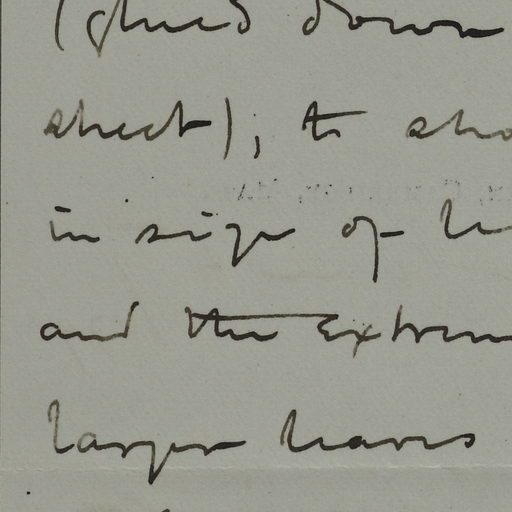 (glued down
sheet); to sho
in size of l
and the extrem
larger leaves